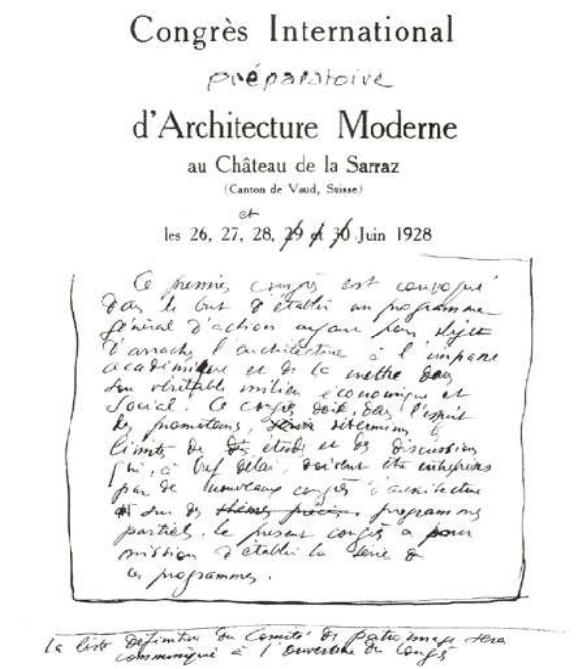 Congrès International
préparatoire
d'Architecture Moderne
au Château de la Sarraz
(Canton de Vaud, Suisse)
et
les 26, 27, 28, 29 et 30 Juin 1928
Ce premier congrès est convoqué
dans le but d'établir un programme
général d'action ayant pour objet
d'arracher l'architecture à l'impasse
académique et de la mettre dans
son véritable milieu économique et
social. Ce congrès doit, dans l'esprit
des promoteurs, déterminer les
limites des études et des discussions
qui, à bref délai, doivent être entreprises
par de nouveaux congrès d'architecture
sur des thèmes précis programmes
partiels. Le présent congrès a pour
mission d'établir la série de
ces programmes.
La liste définitive du Comité de patronnage sera
communiquée à l'ouverture du Congrès